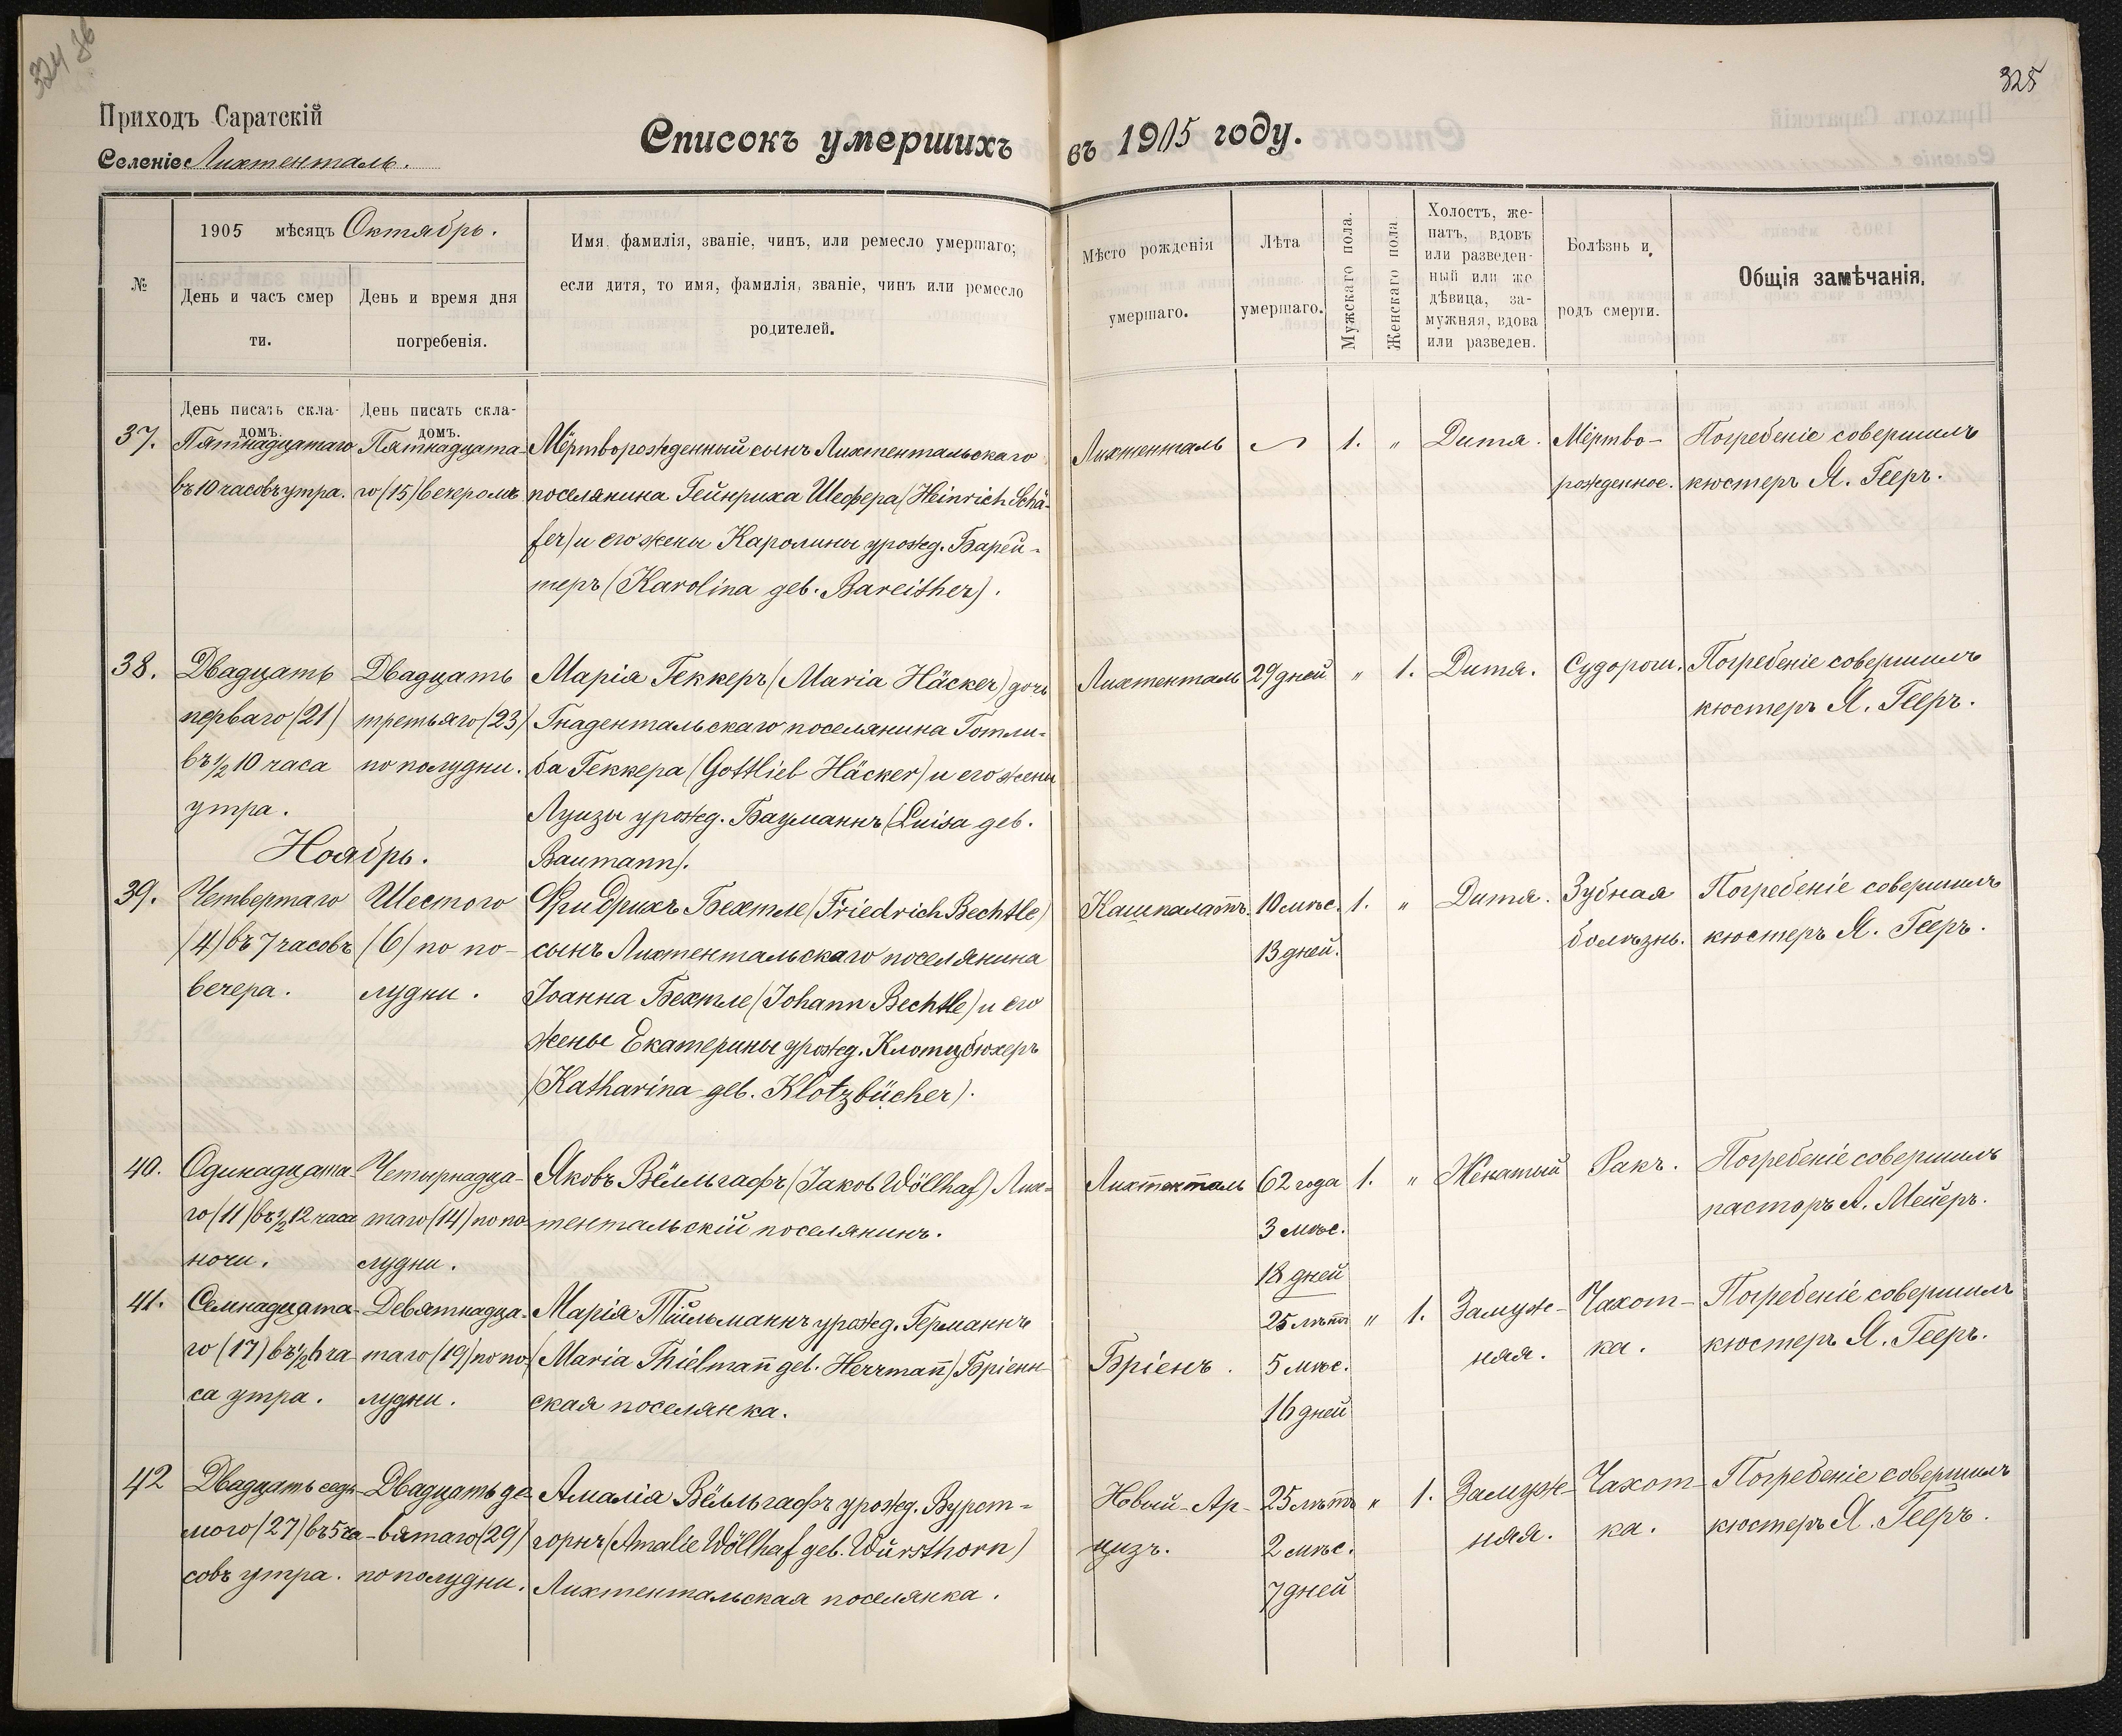 324 36
325
Приходъ Саратскій
Селеніе Лихтенталь.
Списокъ умершихъ въ 1905 году.
№
1905 мѣсяцъ Октябрь.
День и часъ смер
ти.
День и время дня
погребенія.
Имя, фамилія, званіе, чинъ, или ремесло умершаго;
если дитя, то имя, фамилія, званіе, чинъ или ремесло
родителей.
Мѣсто рожденія
умершаго.
Лѣта
умершаго.
Мужскаго пола.
Женскаго пола
Холостъ, же-
натъ, вдовъ
или разведен-
ный или же
дѣвица, за-
мужняя, вдова
или разведен.
Болѣзнь и
родъ смерти.
Общія замѣчанія.
День писать скла-
домъ.
День писать скла-
домъ.
37.
Пятнадцатаго
въ 10 часовъ утра.
Пятнадцата-
го (15) вечеромъ
Мёртворожденный сынъ Лихтентальскаго
поселянина Гейнриха Шефера (Heinrich Schä-
fer) и его жены Каролины урожд. Барей-
теръ (Karolina geb. Bareither).
Лихтенталь
1.
"
Дитя.
Мёртво-
рожденное.
Погребеніе совершилъ
кюстеръ Я. Гееръ.
38.
Двадцать
перваго (21)
въ ½ 10 часа
утра.
Двадцать
третьяго (23)
по полудни.
Марія Геккеръ (Maria Häcker) дочь
Гнадентальскаго поселянина Готли-
ба Геккера (Gottlieb Häcker) и его жены
Луизы урожд. Бауманнъ (Luisa geb.
Baumann).
Лихтенталь
29 дней
"
1.
Дитя.
Судороги.
Погребеніе совершилъ
кюстеръ Я. Гееръ.
Ноябрь.
39.
Четвертаго
(4) въ 7 часовъ
вечера.
Шестого
(6) по по-
лудни.
Фридрихъ Бехтле (Friedrich Bechtle)
сынъ Лихтентальскаго поселянина
Іоанна Бехтле (Johann Bechtle) и его
жены Екатерины урожд. Клотцбюхеръ
(Katharina geb. Klotzbücher).
Кашпалатъ.
10 мѣс.
13 дней.
1.
"
Дитя.
Зубная
болѣзнь.
Погребеніе совершилъ
кюстеръ Я. Гееръ.
40.
Одинадцата-
го (11) въ ½ 12 часа
ночи.
Четырнадца-
таго (14) по по-
лудни.
Яковъ Вёлльгафъ (Jakob Wöllhaf) Лих-
тентальскій поселянинъ.
Лихтенталь
62 года
3 мѣс.
18 дней
1.
"
Женатый
Ракъ.
Погребеніе совершилъ
пасторъ А. Мейеръ.
41.
Семнадцата-
го (17) въ ½ 6 ча-
са утра.
Девятнадца-
таго (19) по по-
лудни.
Марія Тильманнъ урожд. Германнъ
(Maria Thielmañ geb. Herrmañ) Бріенн-
ская поселянка.
Бріенъ.
25 лѣтъ
5 мѣс.
16 дней
"
1.
Замуж-
няя.
Чахот-
ка.
Погребеніе совершилъ
кюстеръ Я. Гееръ.
42
Двадцать седь-
мого (27) въ 5 ча-
совъ утра.
Двадцать де-
вятаго (29)
по полудни.
Амалія Вёлльгафъ урожд. Вурст-
горнъ (Amalie Wöllhaf geb. Wursthorn)
Лихтентальская поселянка.
Новый-Ар-
цизъ.
25 лѣтъ
2 мѣс.
7 дней
"
1.
Замуж-
няя.
Чахот-
ка.
Погребеніе совершилъ
кюстеръ Я. Гееръ.